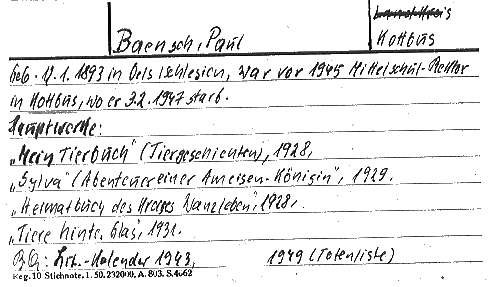 Land-Kreis
Baensch, Paul
Kottbus
Geb. 17.1.1893 in Oels Schlesien, war vor 1945 Mittelschul-Rektor
in Kottbus, wo er 3.2.1947 starb.
Hauptwerke:
„Mein Tierbuch" (Tiergeschichten), 1928,
„Sylva" (Abenteuer einer Ameisen-Königin", 1929.
„Heimatbuch des Kreises Wanzleben", 1928.
„Tiere hinter Glas", 1931.
Lit.-Kalender 1943, 1949 (Totenliste)
Reg. 10 Stichnote. 1. 50. 232000. A. 803. S. 4662